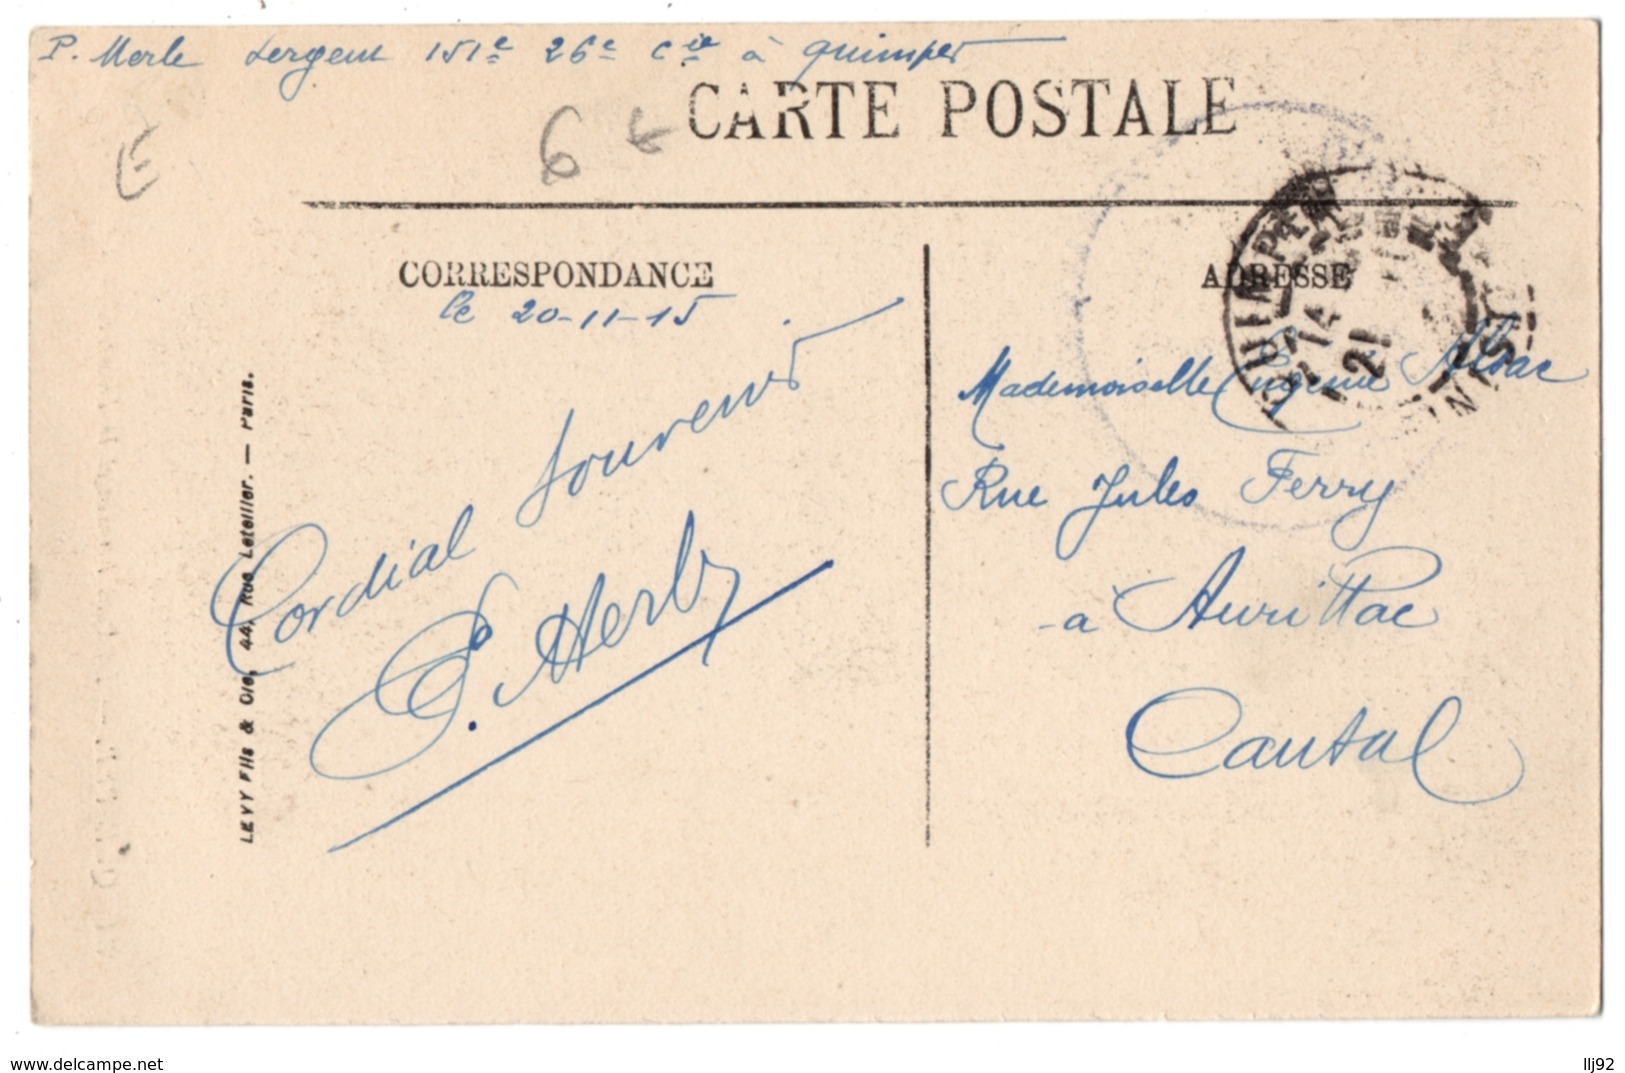 P. Merle Sergent 151e 26e Cie à Quimper
E
6 €
CARTE POSTALE
CORRESPONDANCE
le 20-11-15
Cordial souvenir
P. Merle
LEVY Fils & Cie, 44, Rue Letellier. — Paris.
ADRESSE
QUIMPER
14
21
Mademoiselle Eugénie
Rue Jules Ferry
à Aurillac
Cantal
www.delcampe.net
llj92